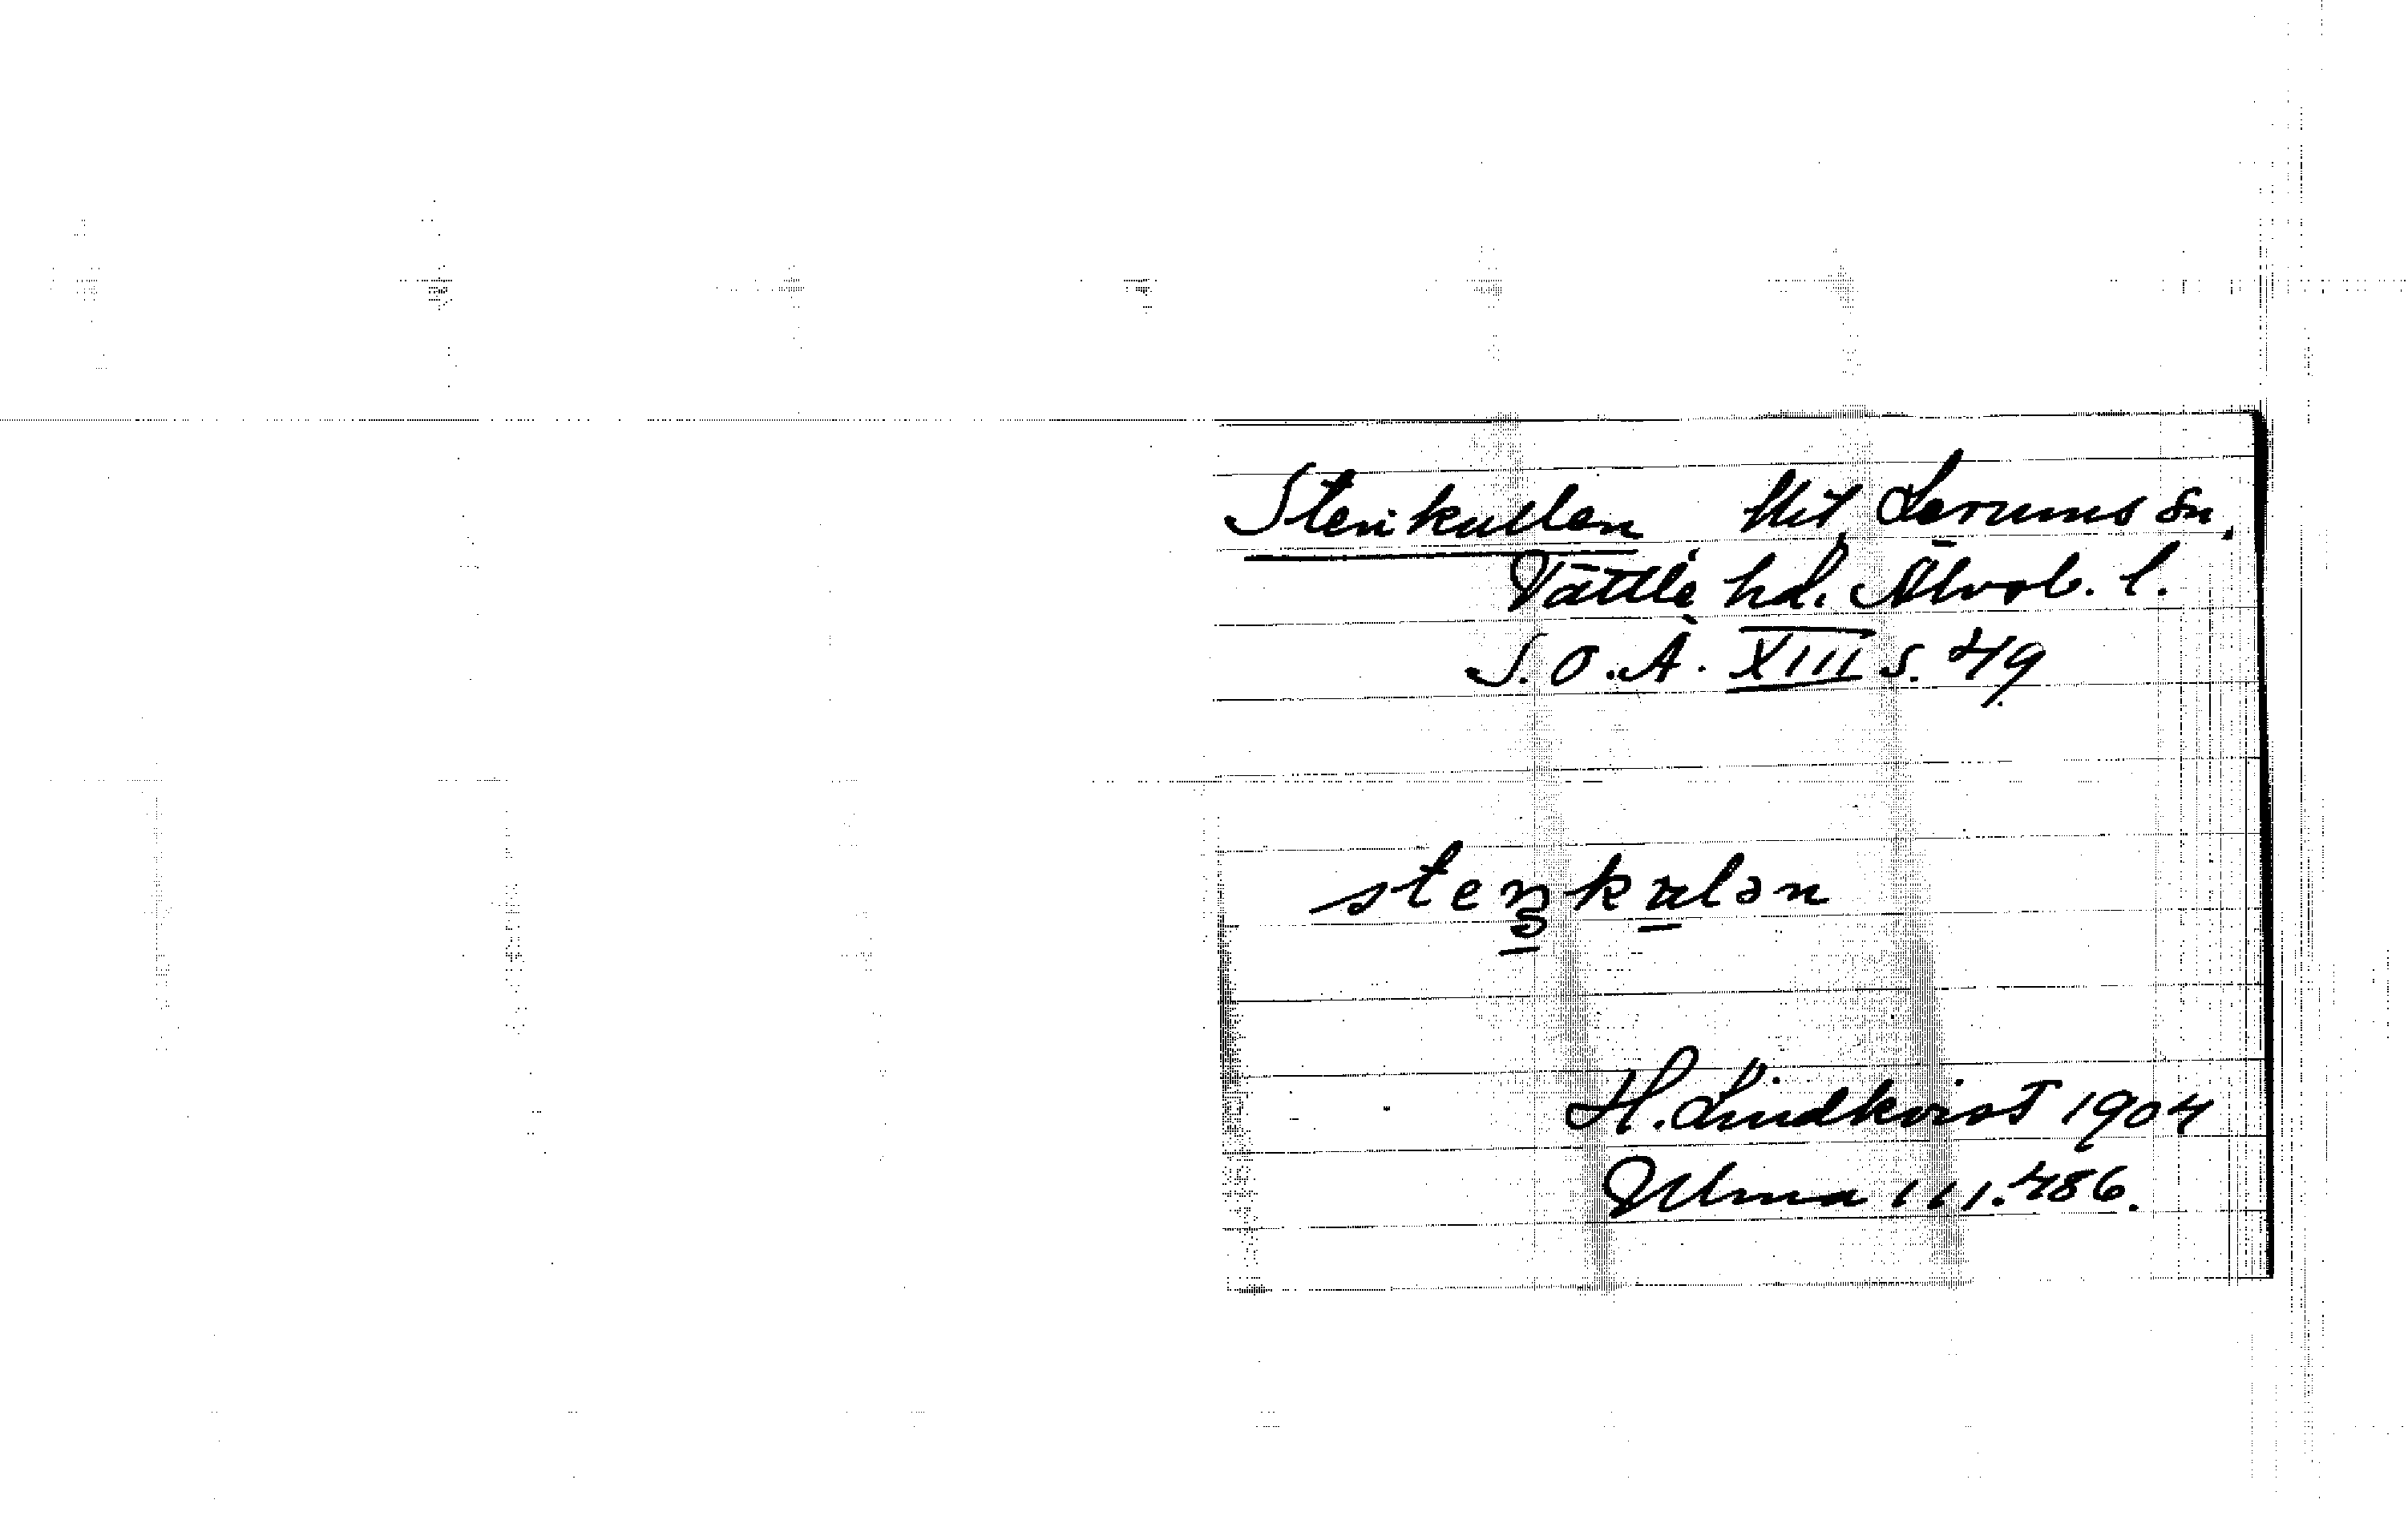 Stenkullen hit Lerums sn,
Vättle hd. Älvsb. l.
S.O.Ä. XIII s. 49
H. Lindkvist 1904
Ulma 111.486.